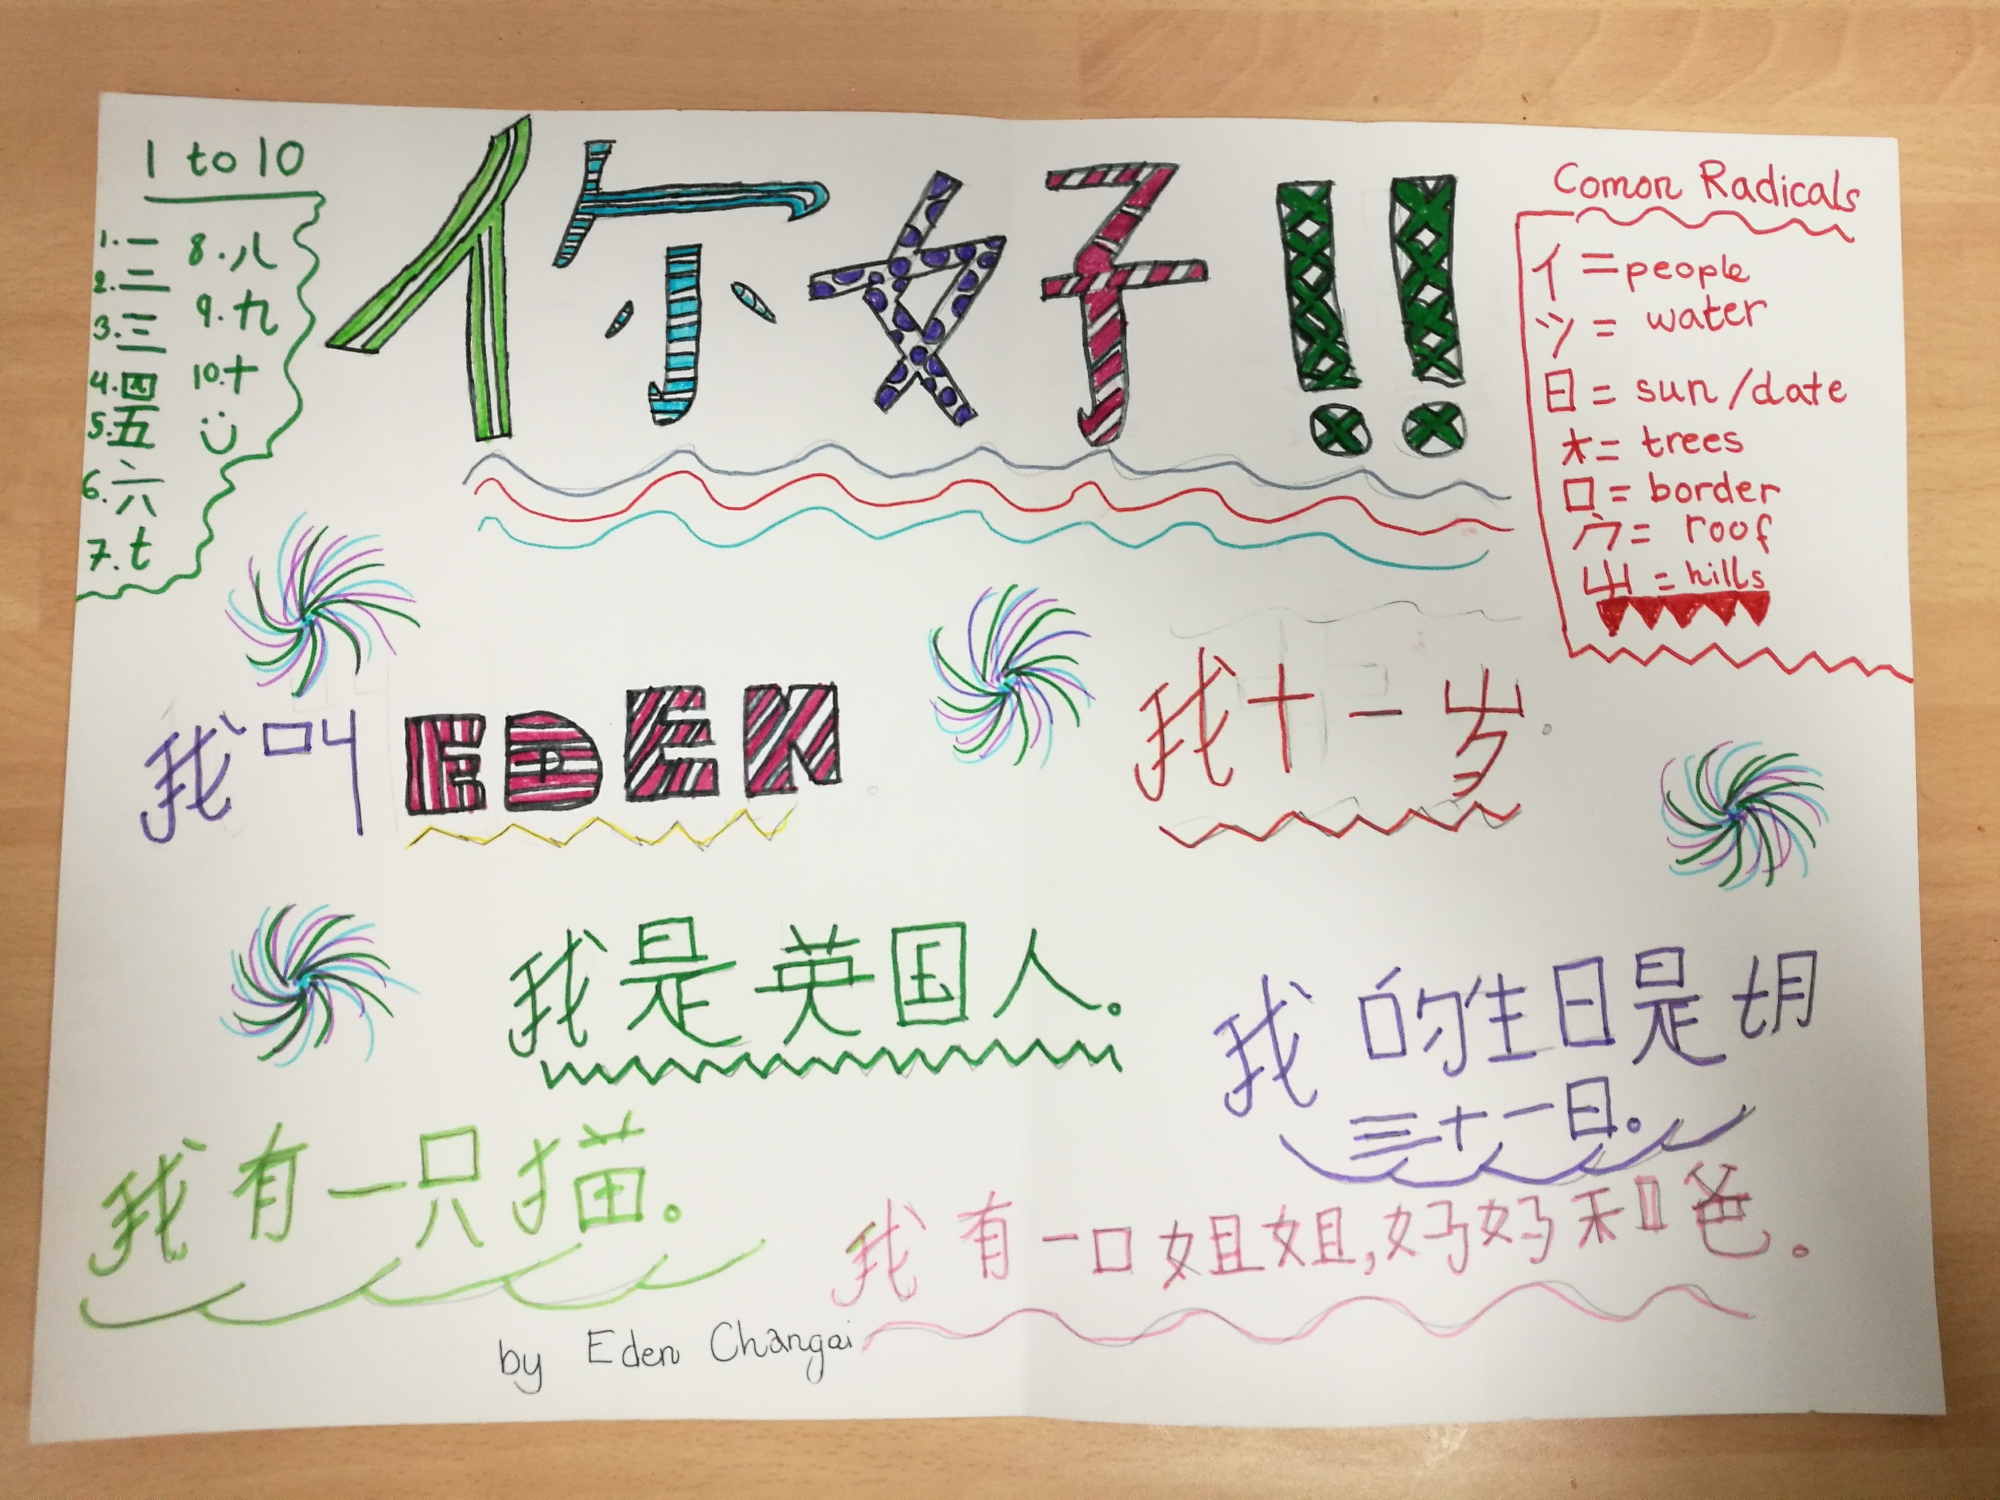 1 to 10
1. 一
2. 二
3. 三
4. 四
5. 五
6. 六
7. t
8. 八
9. 九
10. 十
你好!!
Comon Radicals
亻= people
ツ = water
日 = sun/date
木 = trees
口 = border
宀 = roof
山 = hills
我叫 EDEN
我十一岁
我是英国人。
我的生日是七月
三十一日。
我有一只猫。
我有一口姐姐,妈妈和爸。
by Eden Changai